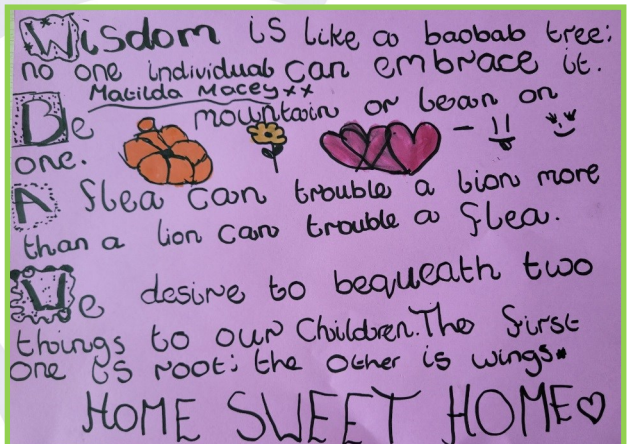 Wisdom is like a baobab tree;
no one individual can embrace it.
Matilda Macey xx
Be mountain or lean on
one.
A flea can trouble a lion more
than a lion can trouble a flea.
We desire to bequeath two
things to our Children. The first
one is root; the other is wings*
HOME SWEET HOME♡